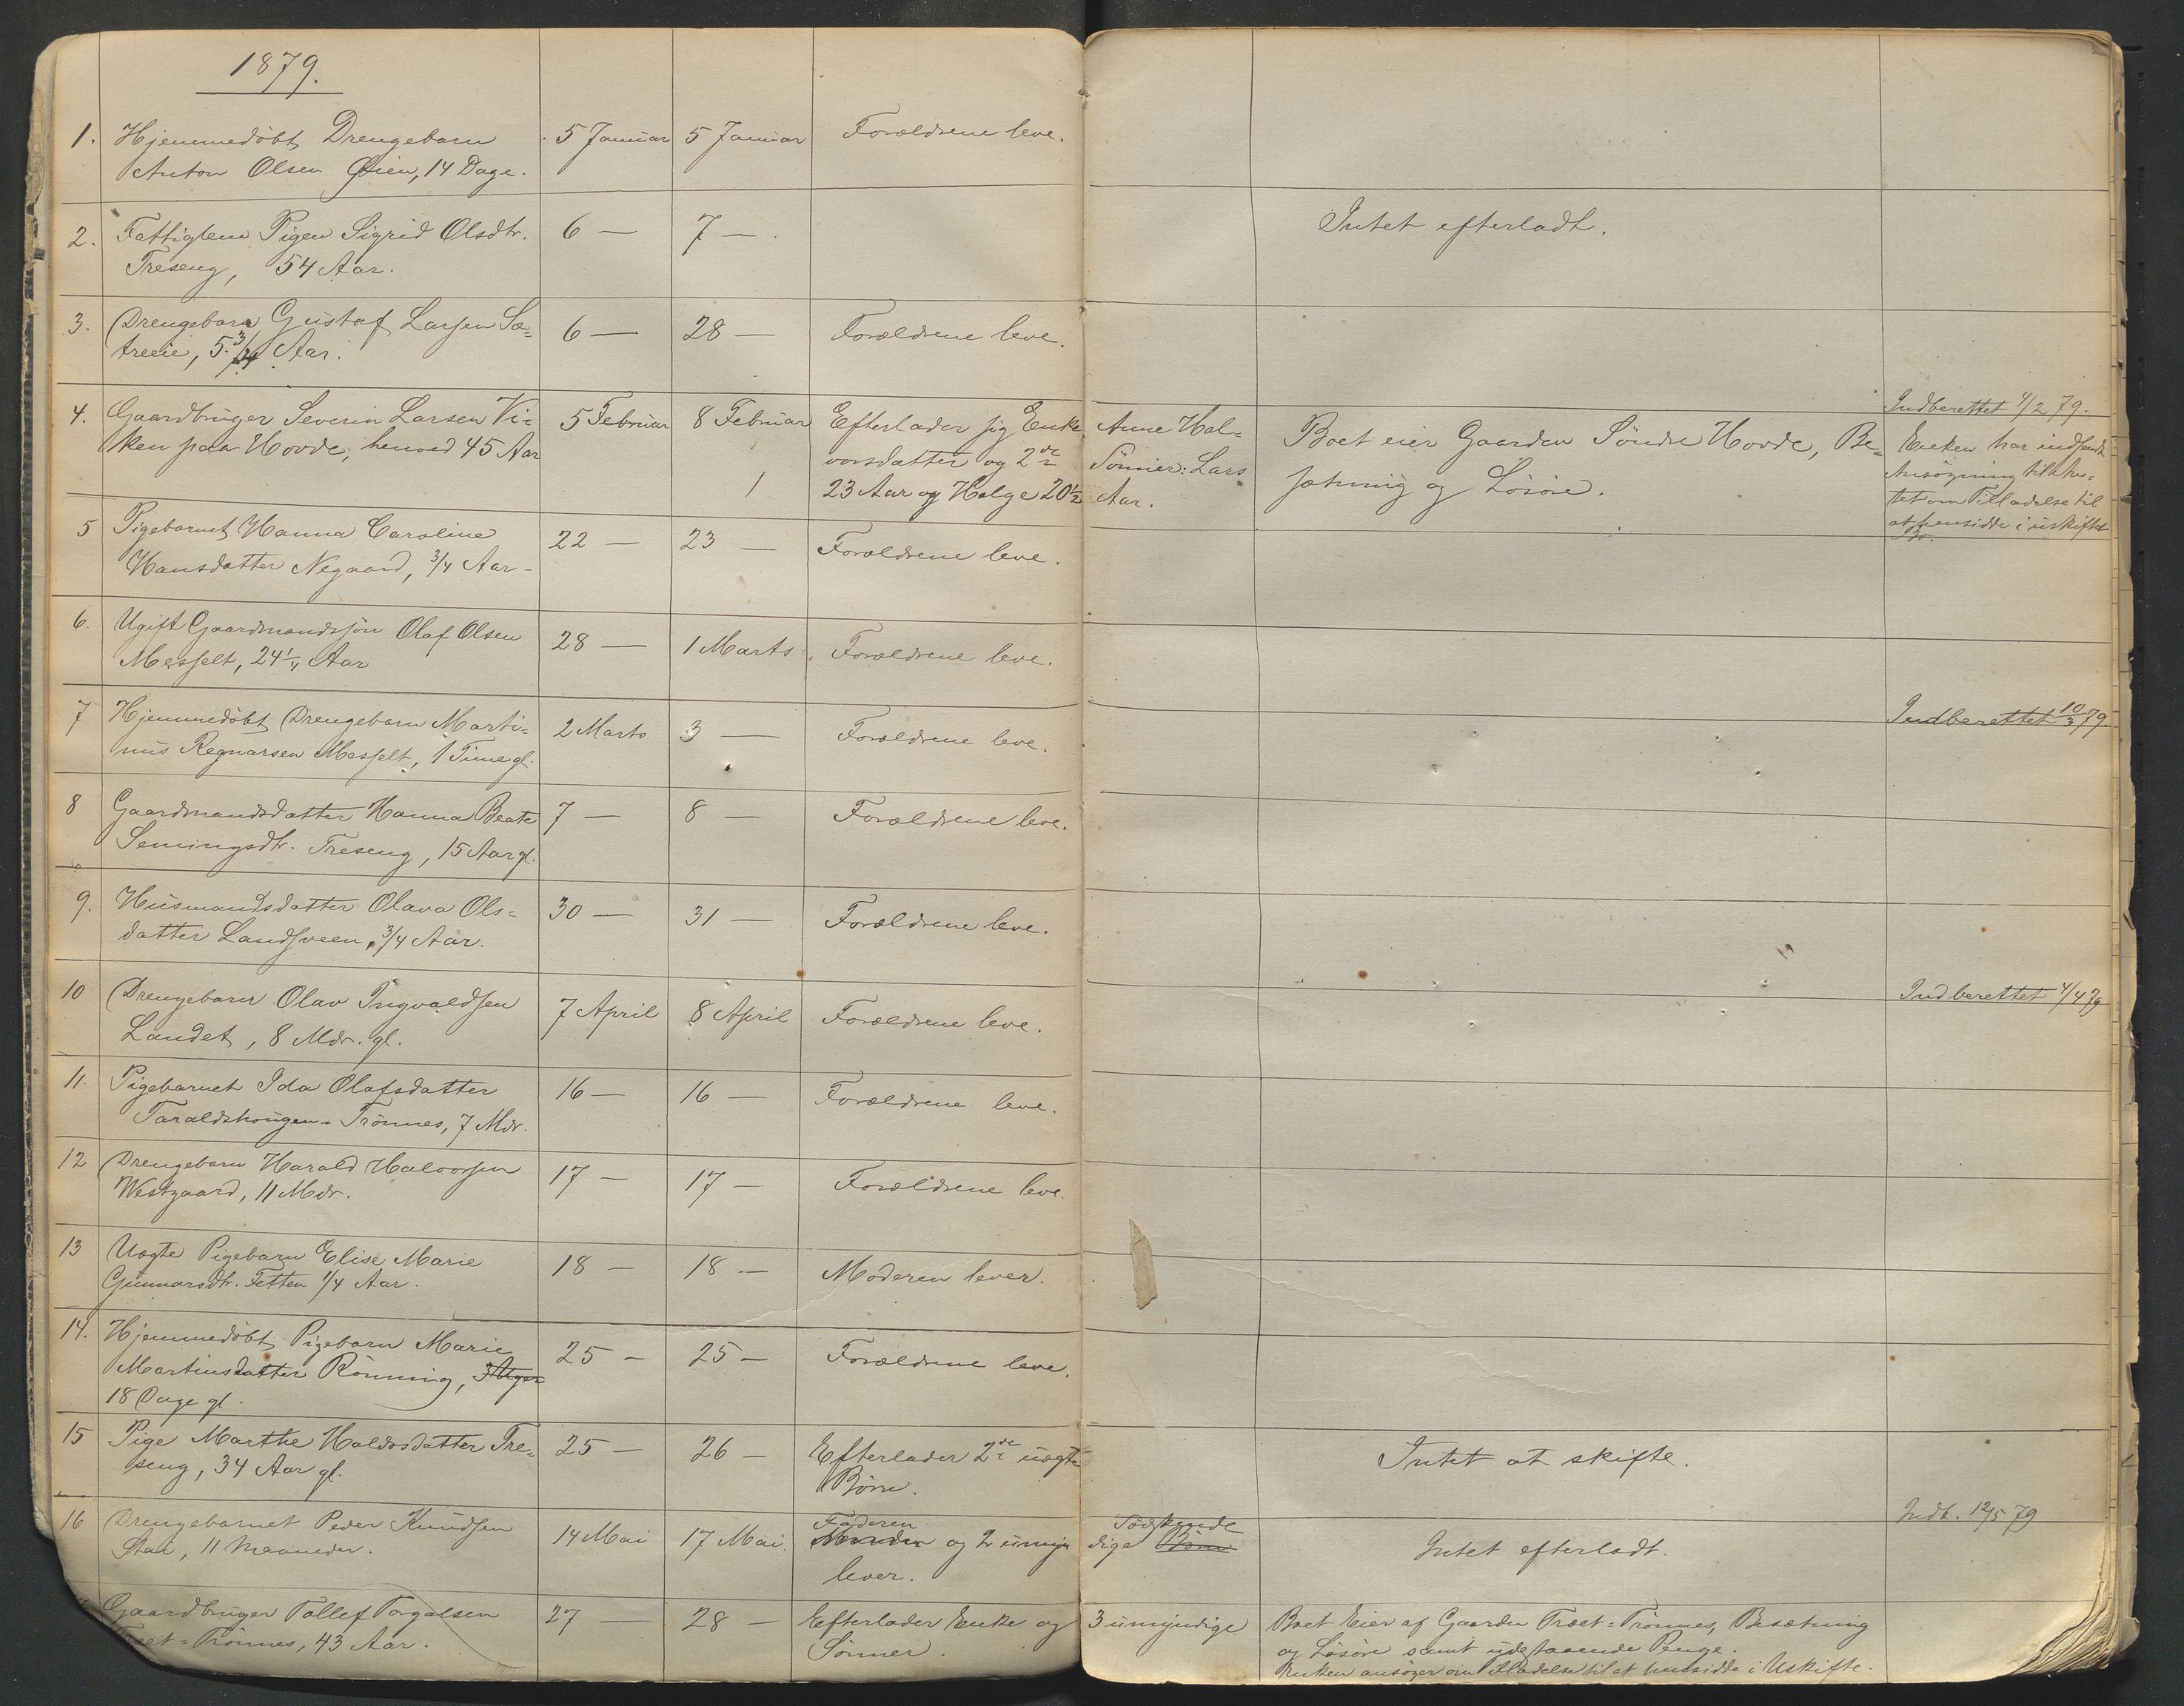 1879.
1. Hjemmedøbt Drengebarn 5 Januar 5 Januar Forældrene leve.
Anton Olsen Øien, 14 Dage.
2. Fattiglem Pigen Sigrid Olsdtr. 6 — 7 — Intet efterladt.
Treseng, 54 Aar.
3. Drengebarn Gustaf Larsen Sæ= 6 — 28 — Forældrene leve.
treeie, 5 3/4 Aar.
Indberettet 4/2 79.
4. Gaardbruger Severin Larsen Vi= 5 Februar 8 Februar Efterlader sig Enke Anne Hal= Boet eier Gaarden Søndre Hovde, Be= Enken har indsendt
ken paa Hovde, henved 45 Aar vorsdatter og 2de Sønner: Lars sætning og Løsøre. Ansøgning til Am=
1 23 Aar og Helge 20 1/2 Aar. tet om Tilladelse til
at hensidde i uskiftet
Bo.
5 Pigebarnet Hanna Caroline 22 — 23 — Forældrene leve.
Hansdatter Negaard, 3/4 Aar -
6. Ugift Gaardmandssøn Olaf Olsen 28 — 1 Marts Forældrene leve.
Messelt, 24 1/4 Aar
7 Hjemmedøbt Drengebarn Marti= 2 Marts 3 — Forældrene leve. Indberettet 10/3 79.
nus Regnarsen Messelt, 1 Time gl.
8 Gaardmandsdatter Hanna Beate 7 — 8 — Forældrene leve.
Semingsdtr. Treseng, 15 Aar gl.
9. Husmandsdatter Olava Ols= 30 — 31 — Forældrene leve.
datter Landsveen, 3/4 Aar.
10 Drengebarn Olav Ingvaldsen 7 April 8 April Forældrene leve. Indberettet 4/4 79
Landet, 8 Mdr. gl.
11. Pigebarnet Ida Olafsdatter 16 — 16 — Forældrene leve.
Taraldshougen = Trønnes, 7 Mdr.
12 Drengebarn Harald Halvorsen 17 — 17 — Forældrene leve.
Westgaard, 11 Mdr.
13 Uægte Pigebarn Elise Marie 18 — 18 — Moderen lever.
Gunnarsdtr. Fetten 1/4 Aar.
14. Hjemmedøbt Pigebarn Marie 25 — 25 — Forældrene leve.
Martinsdatter Rønning, 3 Uger
18 Dage gl.
15 Pige Marthe Haldosdatter Tre= 25 — 26 — Efterlader 2de uægte Intet at skifte.
seng, 34 Aar gl. Børn.
Indb. 12/5 79
16 Drengebarnet Peder Knudsen 14 Mai 17 Mai. Faderen og 2 umyn dige Børn Sødskende Intet efterladt.
Stai, 11 Maaneder. lever.
Gaardbruger Tollef Torgalsen 27 — 28 — Efterlader Enke og 3 umyndige Boet Eier af Gaarden Træet = Trønnes, Besætning
Træet = Trønnes, 43 Aar. Sønner. og Løsøre samt udestaaende Penge.
Enken ansøger om Tilladelse til at hensidde i Uskifte.